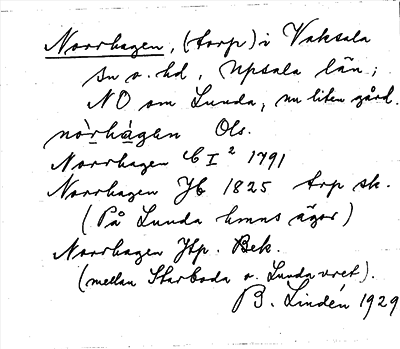 Norrhagen, (torp) i Vaksala
sn o. hd, Upsala län;
NO om Lunda, nu liten gård.
nòrhágen Ols.
Norrhagen C I² 1791
Norrhagen Jb 1825 trp sk.
(På Lunda hmns ägor)
Norrhagen Jbp. Bek.
(mellan Starboda o. Lundavret).
B. Lindén 1929